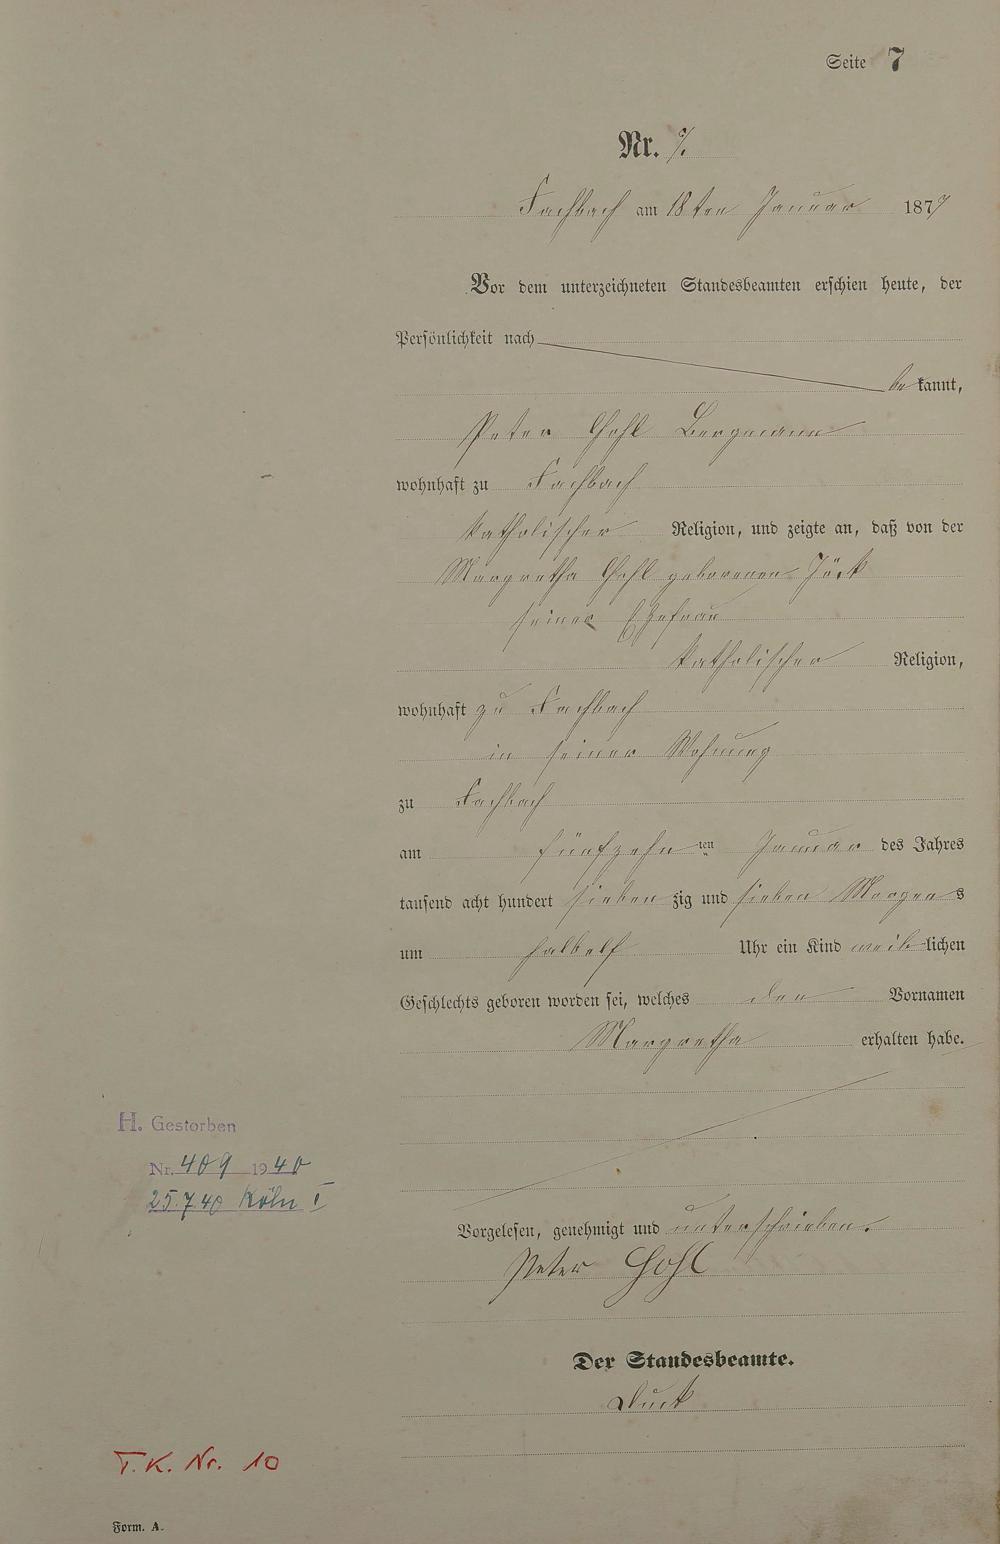 Seite 7
Nr. 7.
Fachbach am 18ten Januar 1877
Vor dem unterzeichneten Standesbeamten erschien heute, der
Persönlichkeit nach
bekannt,
Peter Gohl Bergmann
wohnhaft zu Fachbach
katholischer Religion, und zeigte an, daß von der
Margretha Gohl geborenen Jöck
seiner Ehefrau
katholischer Religion,
wohnhaft zu Fachbach
in seiner Wohnung
zu Fachbach
am fünfzehnten Januar des Jahres
tausend acht hundert siebenzig und sieben Morgens
um halbelf Uhr ein Kind weiblichen
Geschlechts geboren worden sei, welches den Vornamen
Margretha erhalten habe.
H. Gestorben
Nr. 409 1940
25.7.40 Köln I
Vorgelesen, genehmigt und unterschrieben.
Peter Gohl
Der Standesbeamte.
T.K. Nr. 10
Form. A.